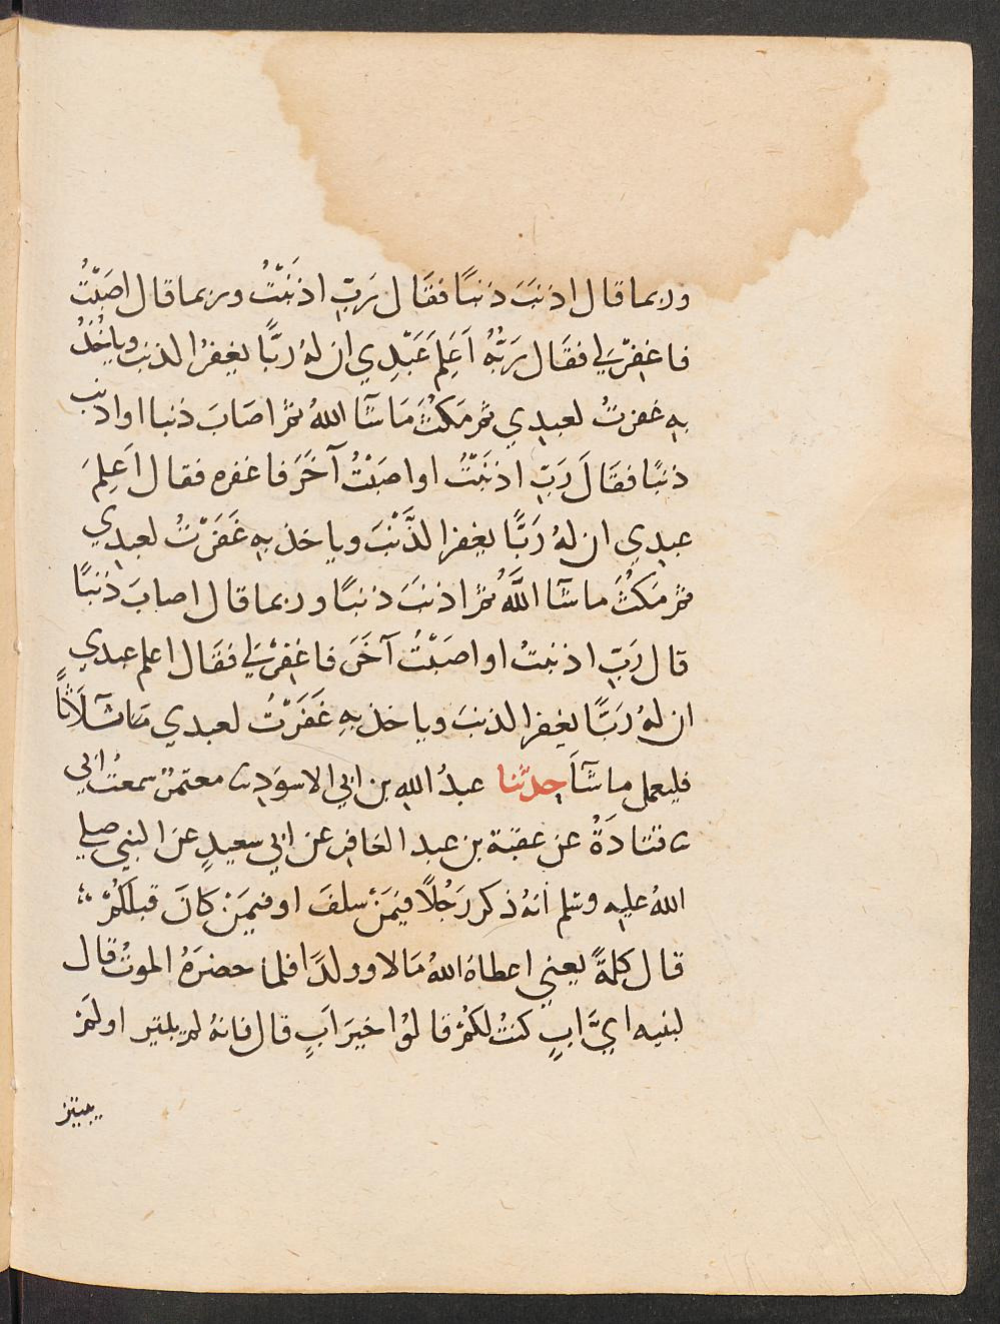 وربما قال اذنَبَ ذنبًا فقَال رَبِّ اذنَبْتُ وربما قال اصَبْتُ
فاغفِرْ لي فقَال رَبُّهُ اَعَلِمَ عَبْدِي ان لهُ ربًّا يغفرُ الذنب وياخُذُ
بهِ غفرتُ لعبدِي ثم مَكثَ مَا شآ اللهُ ثم اصَابَ ذنبا او اذنب
ذنبًا فقَالَ رَبِّ اذنَبْتُ او اصَبْتُ آخَرَ فاغفره فقال اَعِلِمَ
عبدِي ان لهُ رَبًّا يغفر الذَّنْبَ وياخذ بهِ غَفَرْتُ لعبدِي
ثم مَكثَ ما شآ اللَّهُ ثم اذنَبَ ذنبًا وربما قال اصابَ ذنبًا
قال رَبِّ اذنبتُ او اصَبْتُ آخَرَ فاغفِرْ لي فقَال اعلم عبدِي
ان لهُ رَبًّا يغفر الذنبَ وياخذ بهِ غَفَرْتُ لعبدي ثلَاثًا
فليعمل ما شآءَ حدثنا عبدُ اللهِ بن ابي الاسوَدِ ثنا معتمرٌ سمعتُ ابي
ثنا قتادَةُ عن عقبة بن عبد الغافِر عن ابي سعيدٍ عن النبي صلي
اللهُ عليه وسلم انهُ ذكر رَجُلًا فيمَنْ سلفَ او فيمَنْ كانَ قبلكُمْ
قال كلمةً يعني اعطاهُ اللهُ مَالا وولدًا فلما حضرَهُ الموتُ قال
لبنيه ايَّ ابٍ كنتُ لكمْ قالوْا خيرَ اَبٍ قال فانهُ لم يبتير او لمْ
يبتئز